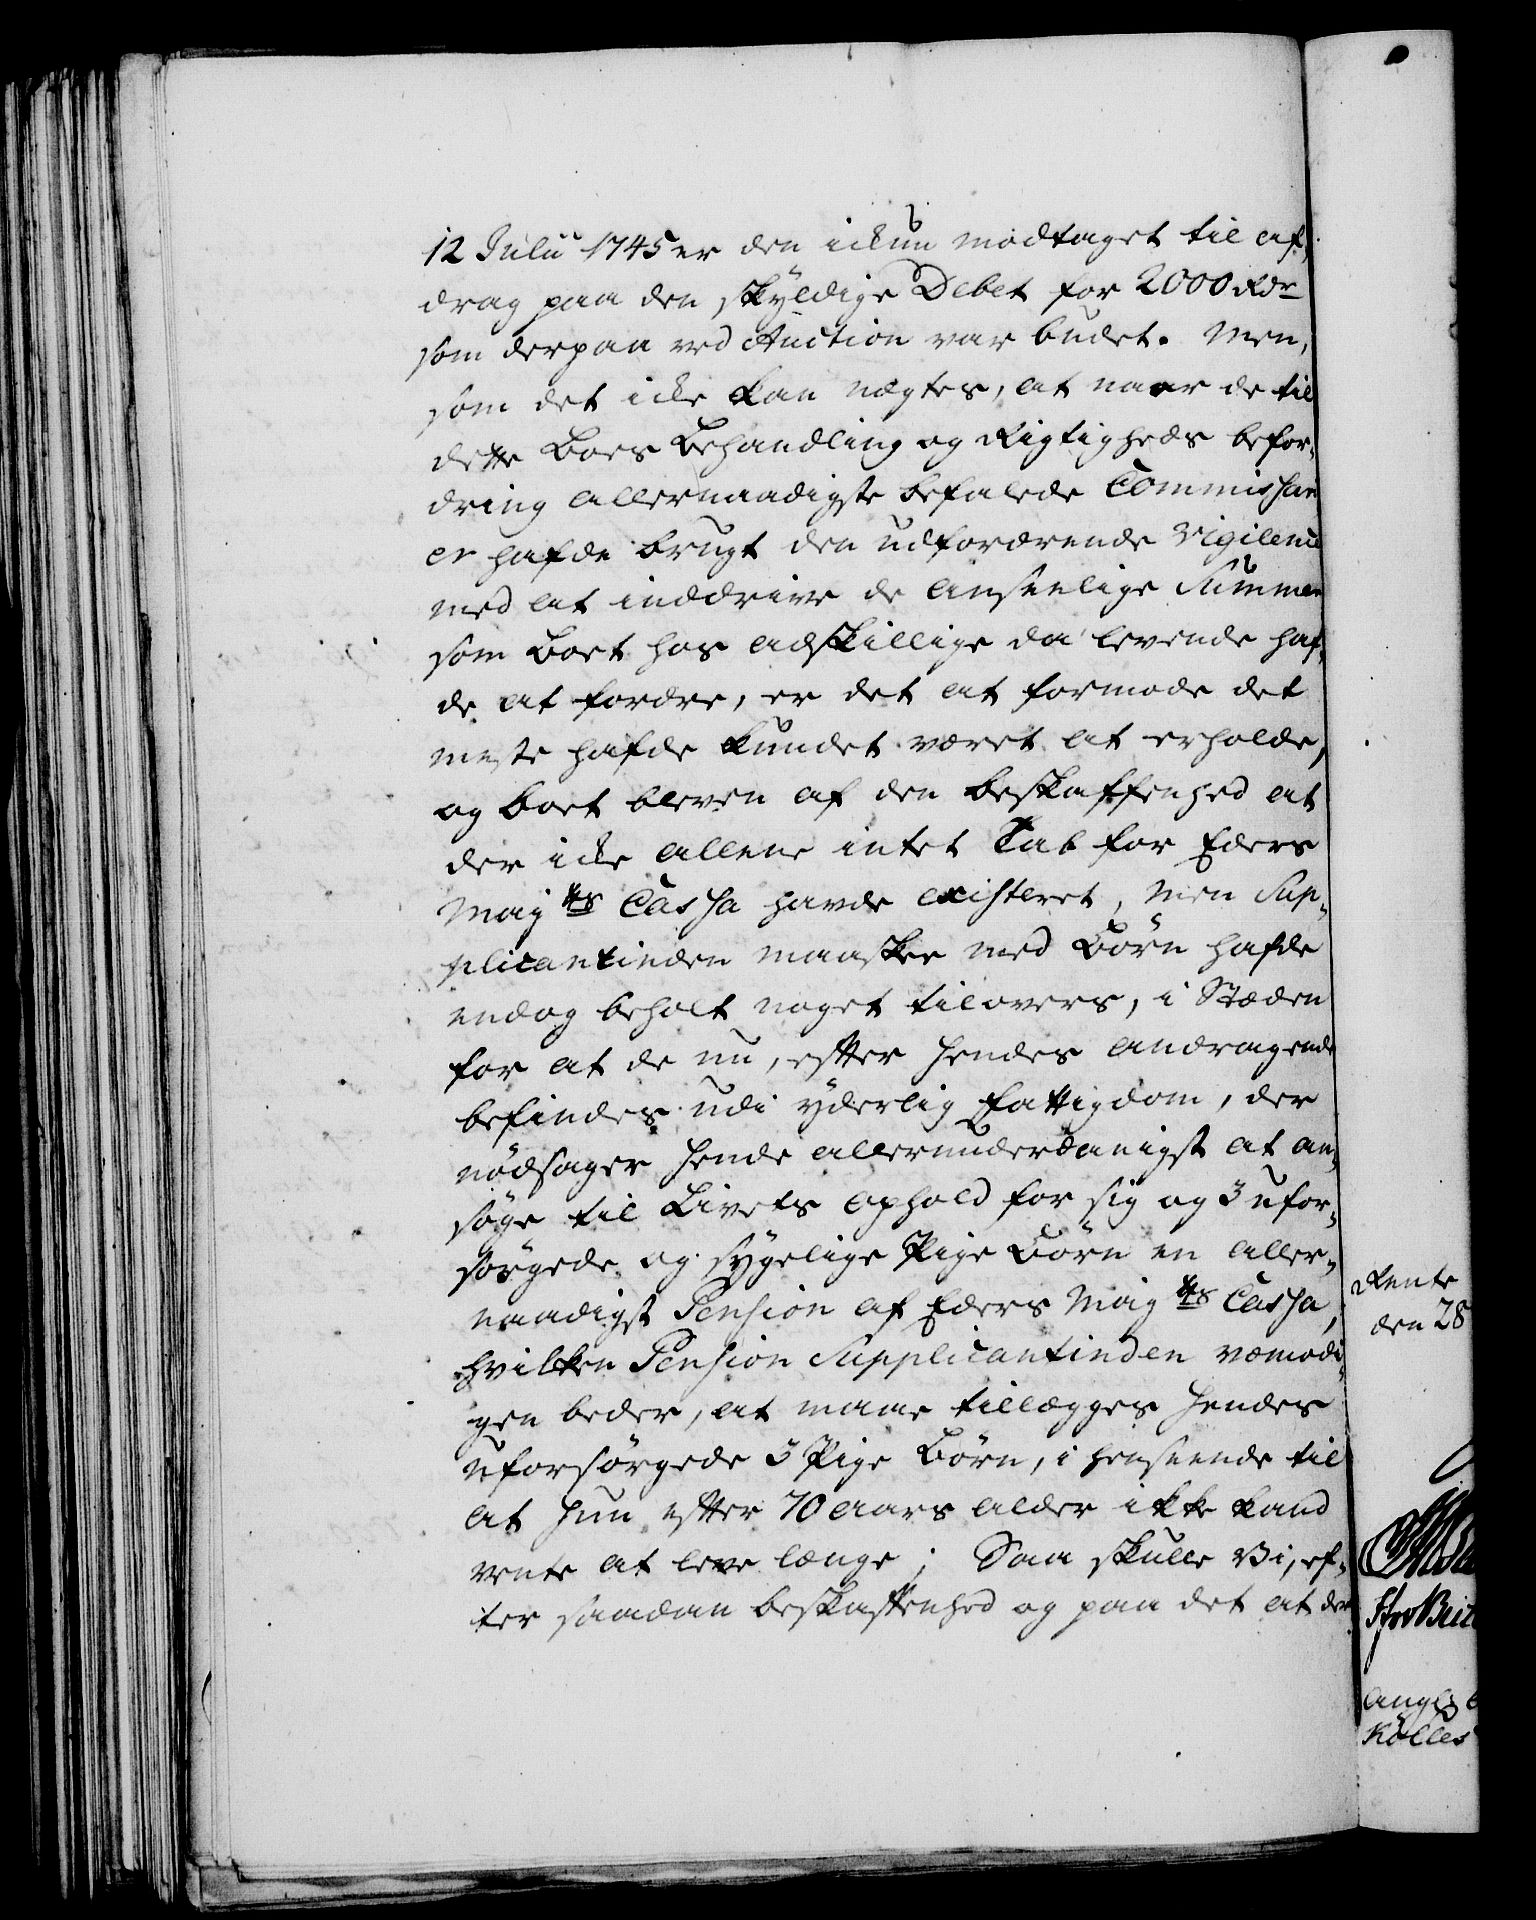 12 Julii 1745 er den ickun modtaget til af-
drag paa den skyldige Debet for 2000 Rdr
som derpaa ved Auction var budet. Men,
som det icke kan nægtes, at naar de til
dette Boes Behandling og Rigtigheds befor-
dring allernaadigste befalede Commissari
er hafde brugt den udfordrende Vigilence
med at inddrive de anseelige Summer
som Boet hos adskillige da levende haf-
de at fordre, er det at formode det
meste hafde kundet været at erholde,
og boet bleven af den beskaffenhed at
der icke allene intet Tab for Eders
Mayts Cassa havde existeret, men Sup-
plicantinden maaskee med Börn hafde
endog beholt noget tilovers, i Stæden
for at de nu, efter hendes andragende
befindes udi yderlig Fattigdom, der
nödsager hende allerunderdanigst at an-
søge til Livets Ophold for sig og 3 ufor-
sørgede og sygelige Pige Börn en aller-
naadigst Pension af Eders Mayts Cassa,
hvilken Pension Supplicantinden vemodi-
gen beder, at maae tillægges hendes
uforsörgede 3 Pige Börn, i henseende til
at hun efter 70 Aars alder ikke kand
vente at leve længe; Saa skulle Vi, ef-
ter saadan beskaffenhed og paa det at der
Rente
den 28